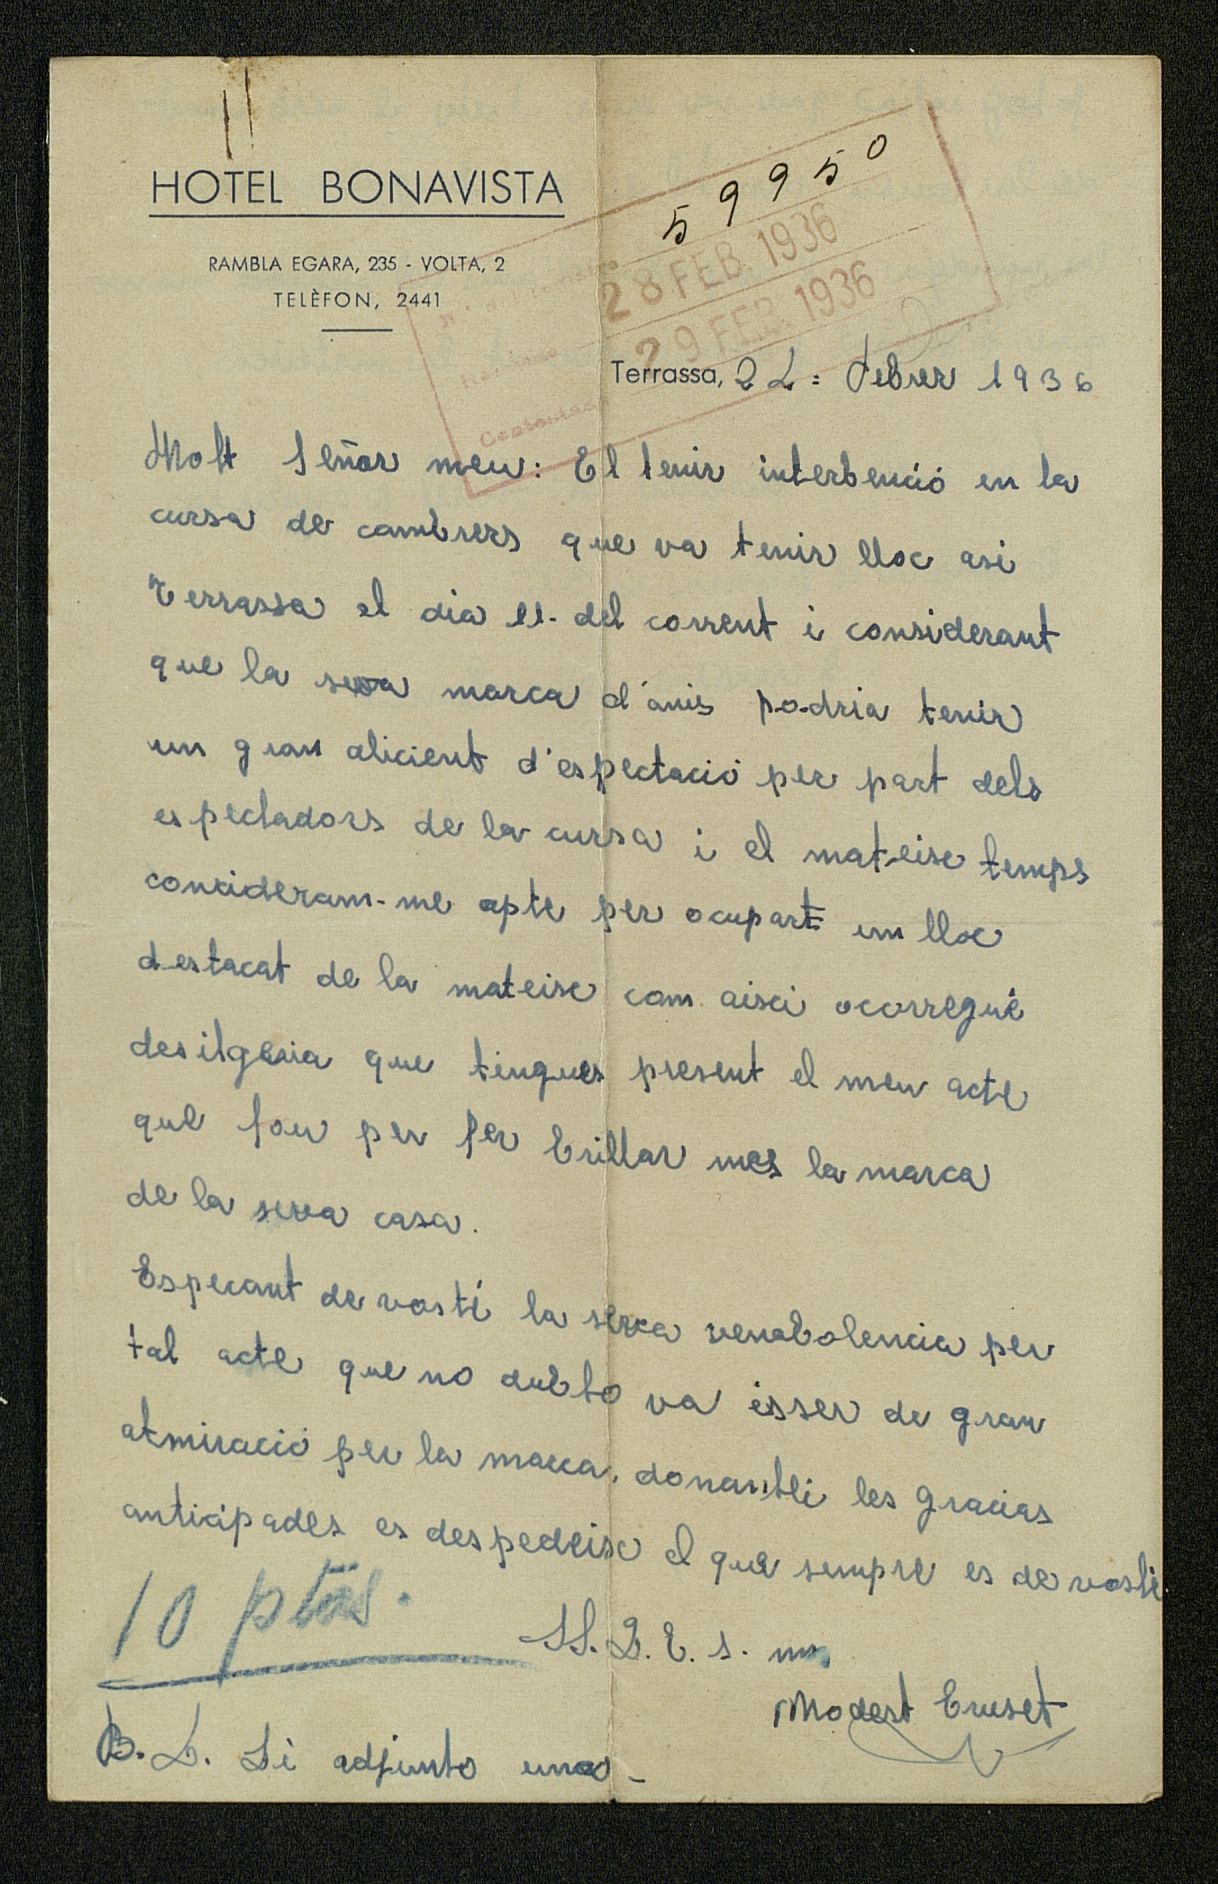 HOTEL BONAVISTA
RAMBLA EGARA, 235 - VOLTA, 2
TELÈFON, 2441
59950
28 FEB. 1936
29 FEB. 1936
Terrassa, 22 = Febrer 1936
Molt Señor meu: El tenir interbenció en la
cursa de cambrers que va tenir lloc asi
Terrassa el dia 11. del corrent i considerant
que la seva marca d'anis podria tenir
un gran alicient d'espectació per part dels
espectadors de la cursa i el mateisc temps
consideram-me apte per ocupart un lloc
destacat de la mateisc com aisci ocorregué
desitgeria que tingues present el meu acte
que fou per fer brillar mes la marca
de la seva casa.
Esperant de vosté la seva venabolencia per
tal acte que no dubto va ésser de gran
atmiració per la marca, donantli les gracias
anticipades es despedeisc el que sempre es de vosté
10 ptas.
S.S.Q.E.s. m
Modest Cruset
B. L. Si adjunto una